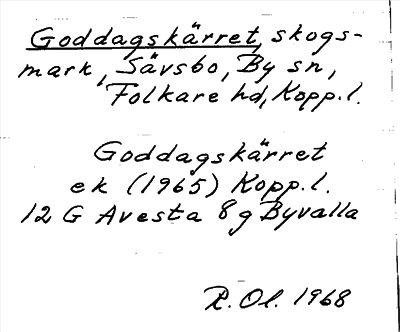 Goddagskärret, skogs-
mark, Sävsbo, By sn,
Folkare hd, Kopp.l.
Goddagskärret
ek (1965) Kopp.l.
12 G Avesta 8g Byvalla
R.Ol. 1968